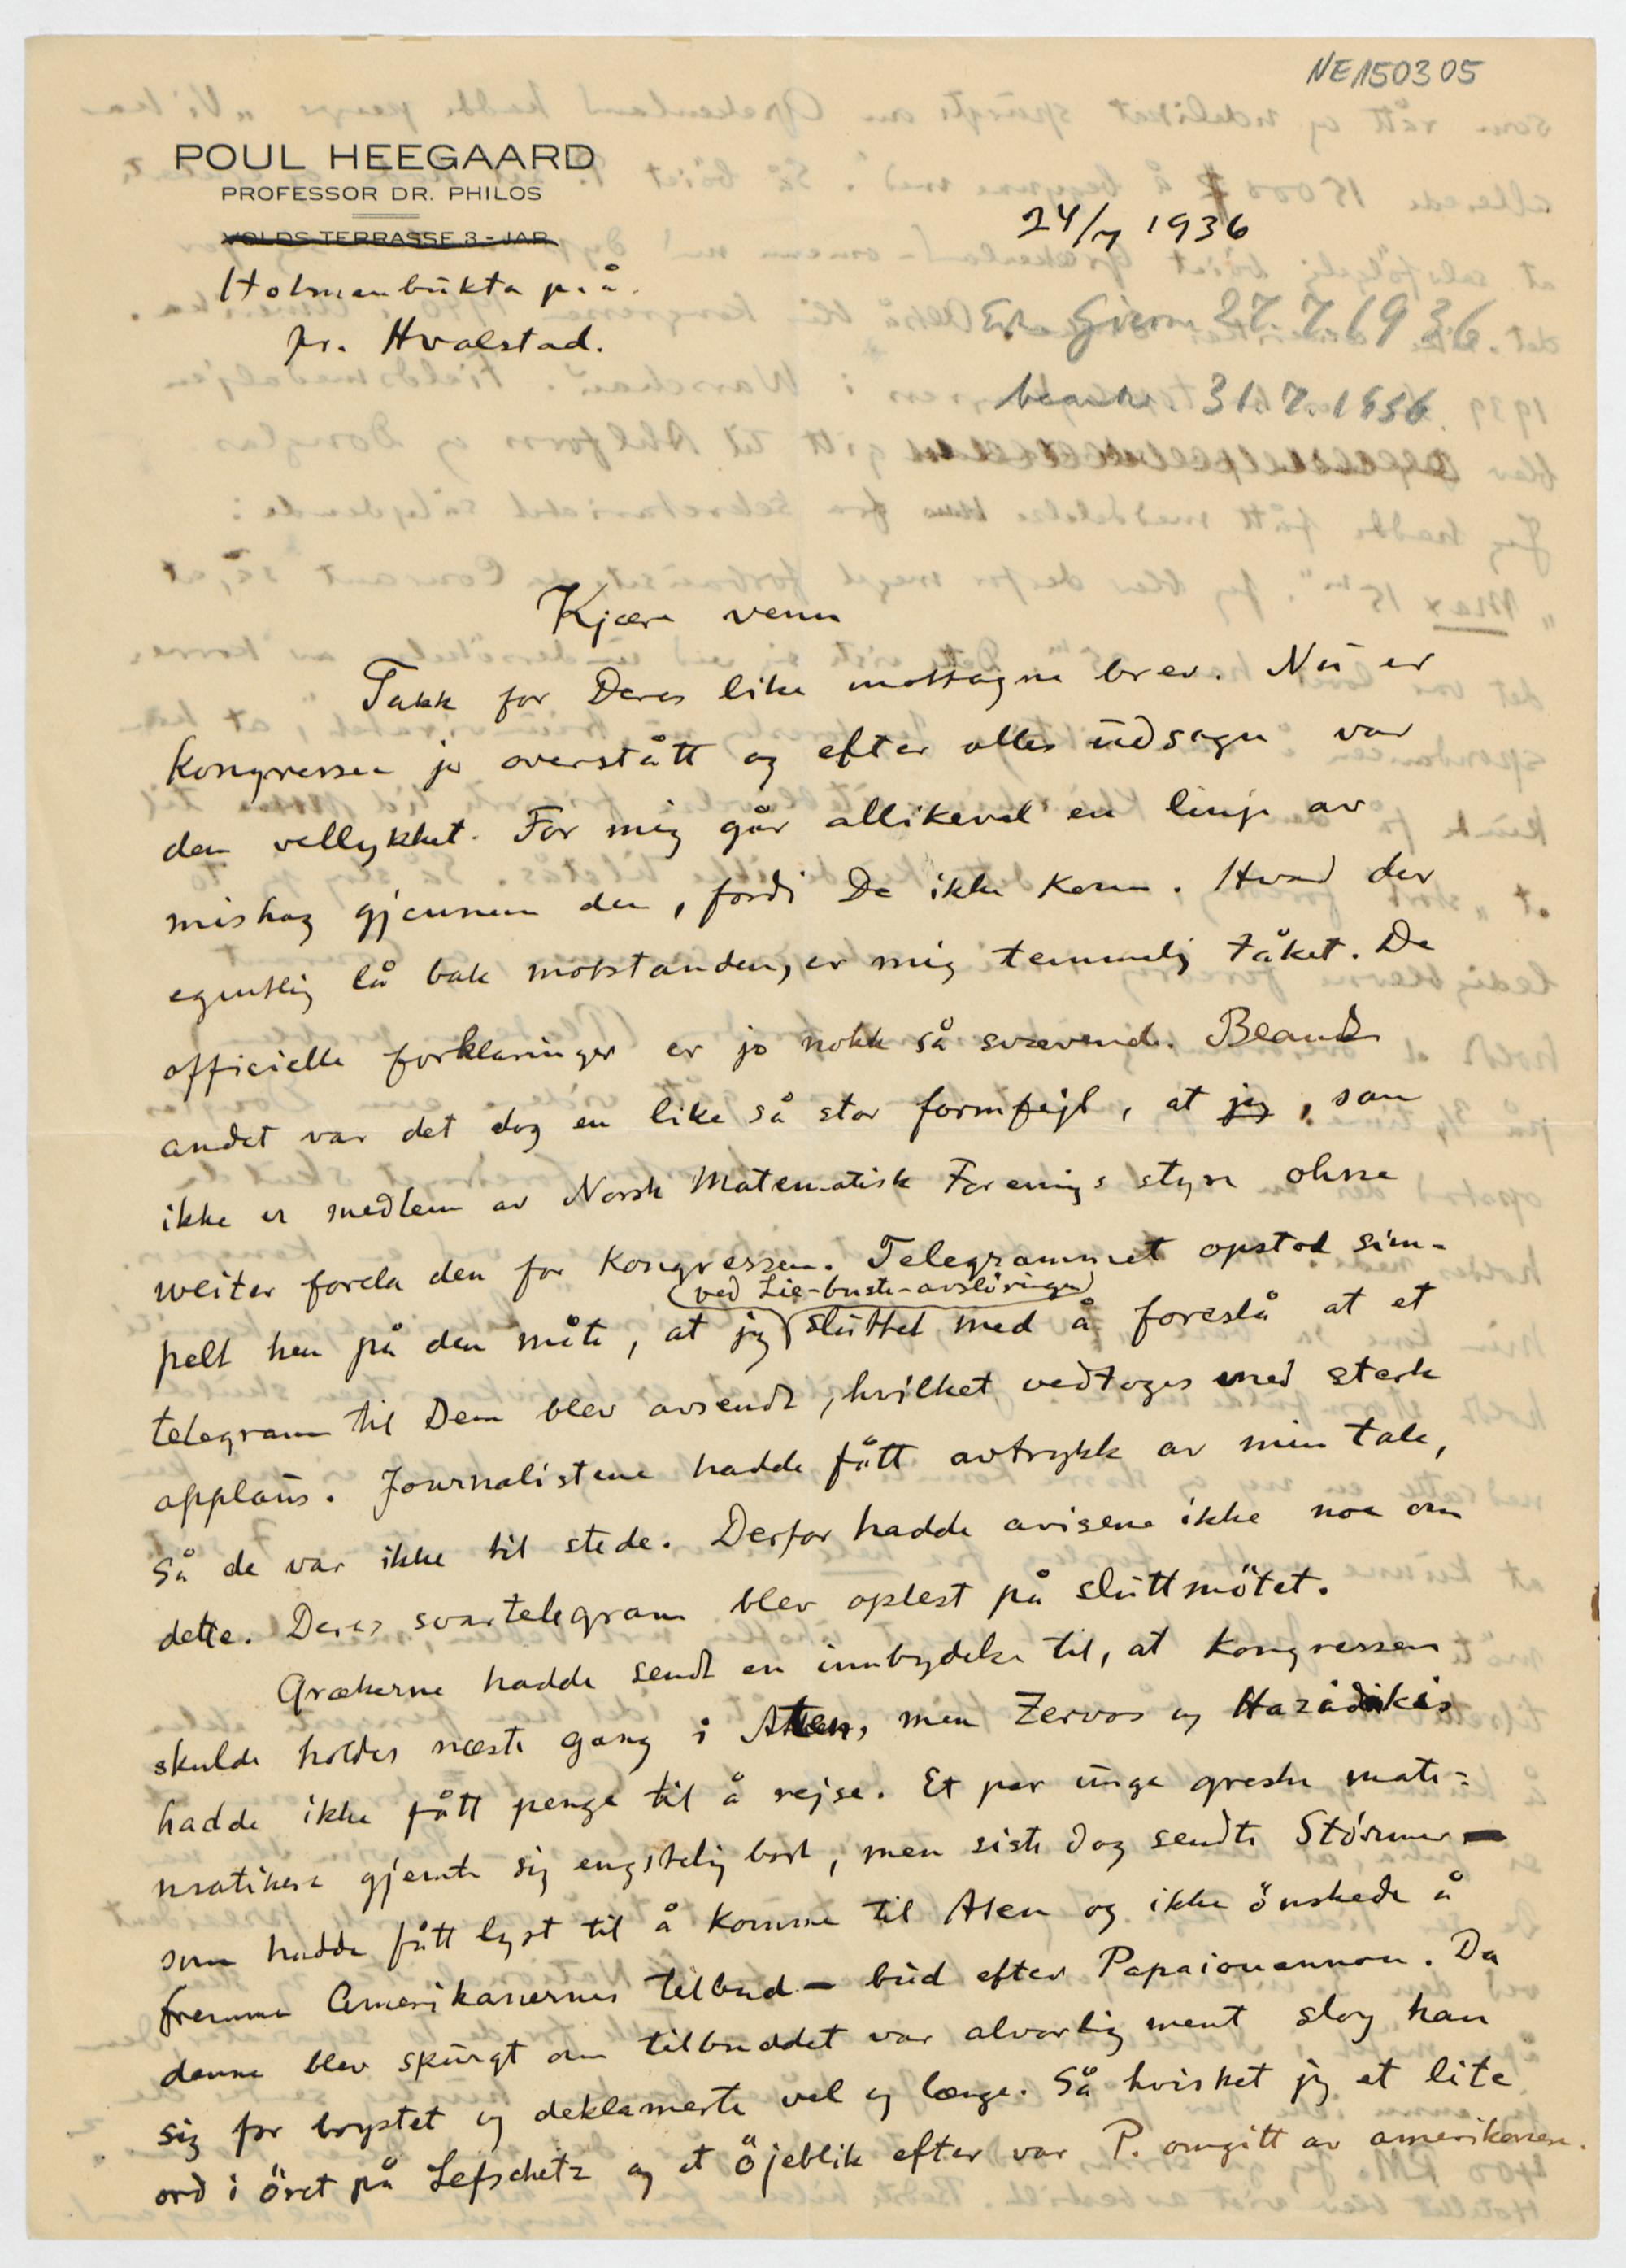 NE150305
POUL HEEGAARD
PROFESSOR DR. PHILOS
VOLDS TERRASSE 3 - JAR
24/7 1936
Holmenbukta p.å.
pr. Hvalstad.
Giron 27.7.1936
beantw. 31.7.1936
Kjære venn
Takk for Deres like mottagne brev. Nu er
Kongressen jo overstått og efter alles udsagn var
den vellykket. For mig går allikevel en linje av
mishag gjennem den, fordi De ikke kom. Hvad der
egentlig lå bak motstanden, er mig temmelig tåket. De
officielle forklaringer er jo nokk så svævende. Blandt
andet var det dog en like så stor formfejl, at jeg, som
ikke er medlem av Norsk Matematisk Forenings styre ohne
weiter forela den for Kongressen. Telegrammet opstod sim-
(ved Lie-buste-avsløringen)
pelt hen på den måte, at jeg sluttet med å foreslå at et
telegram til Dem blev avsendt, hvilket vedtoges med sterk
applaus. Journalistene hadde fått avtrykk av min tale,
så de var ikke til stede. Derfor hadde avisene ikke noe om
dette. Deres svartelegram blev oplest på sluttmötet.
Grækerne hadde sendt en innbydelse til, at Kongressen
skulde holdes næste gang i Aten, men Zervos og Hazidakis
hadde ikke fått penge til å rejse. Et par unge greske mate=
matikere gjemte sig engstelig bort, men siste dag sendte Störmer —
som hadde fått lyst til å komme til Aten og ikke önskede å
fremme Amerikanernes tilbud — bud efter Papaioannou. Da
denne blev spurgt om tilbuddet var alvorlig ment slog han
sig for brystet og deklamerte vel og længe. Så hvisket jeg et lite
ord i öret på Lefschetz og et öjeblik efter var P. omgitt av amerikanere.